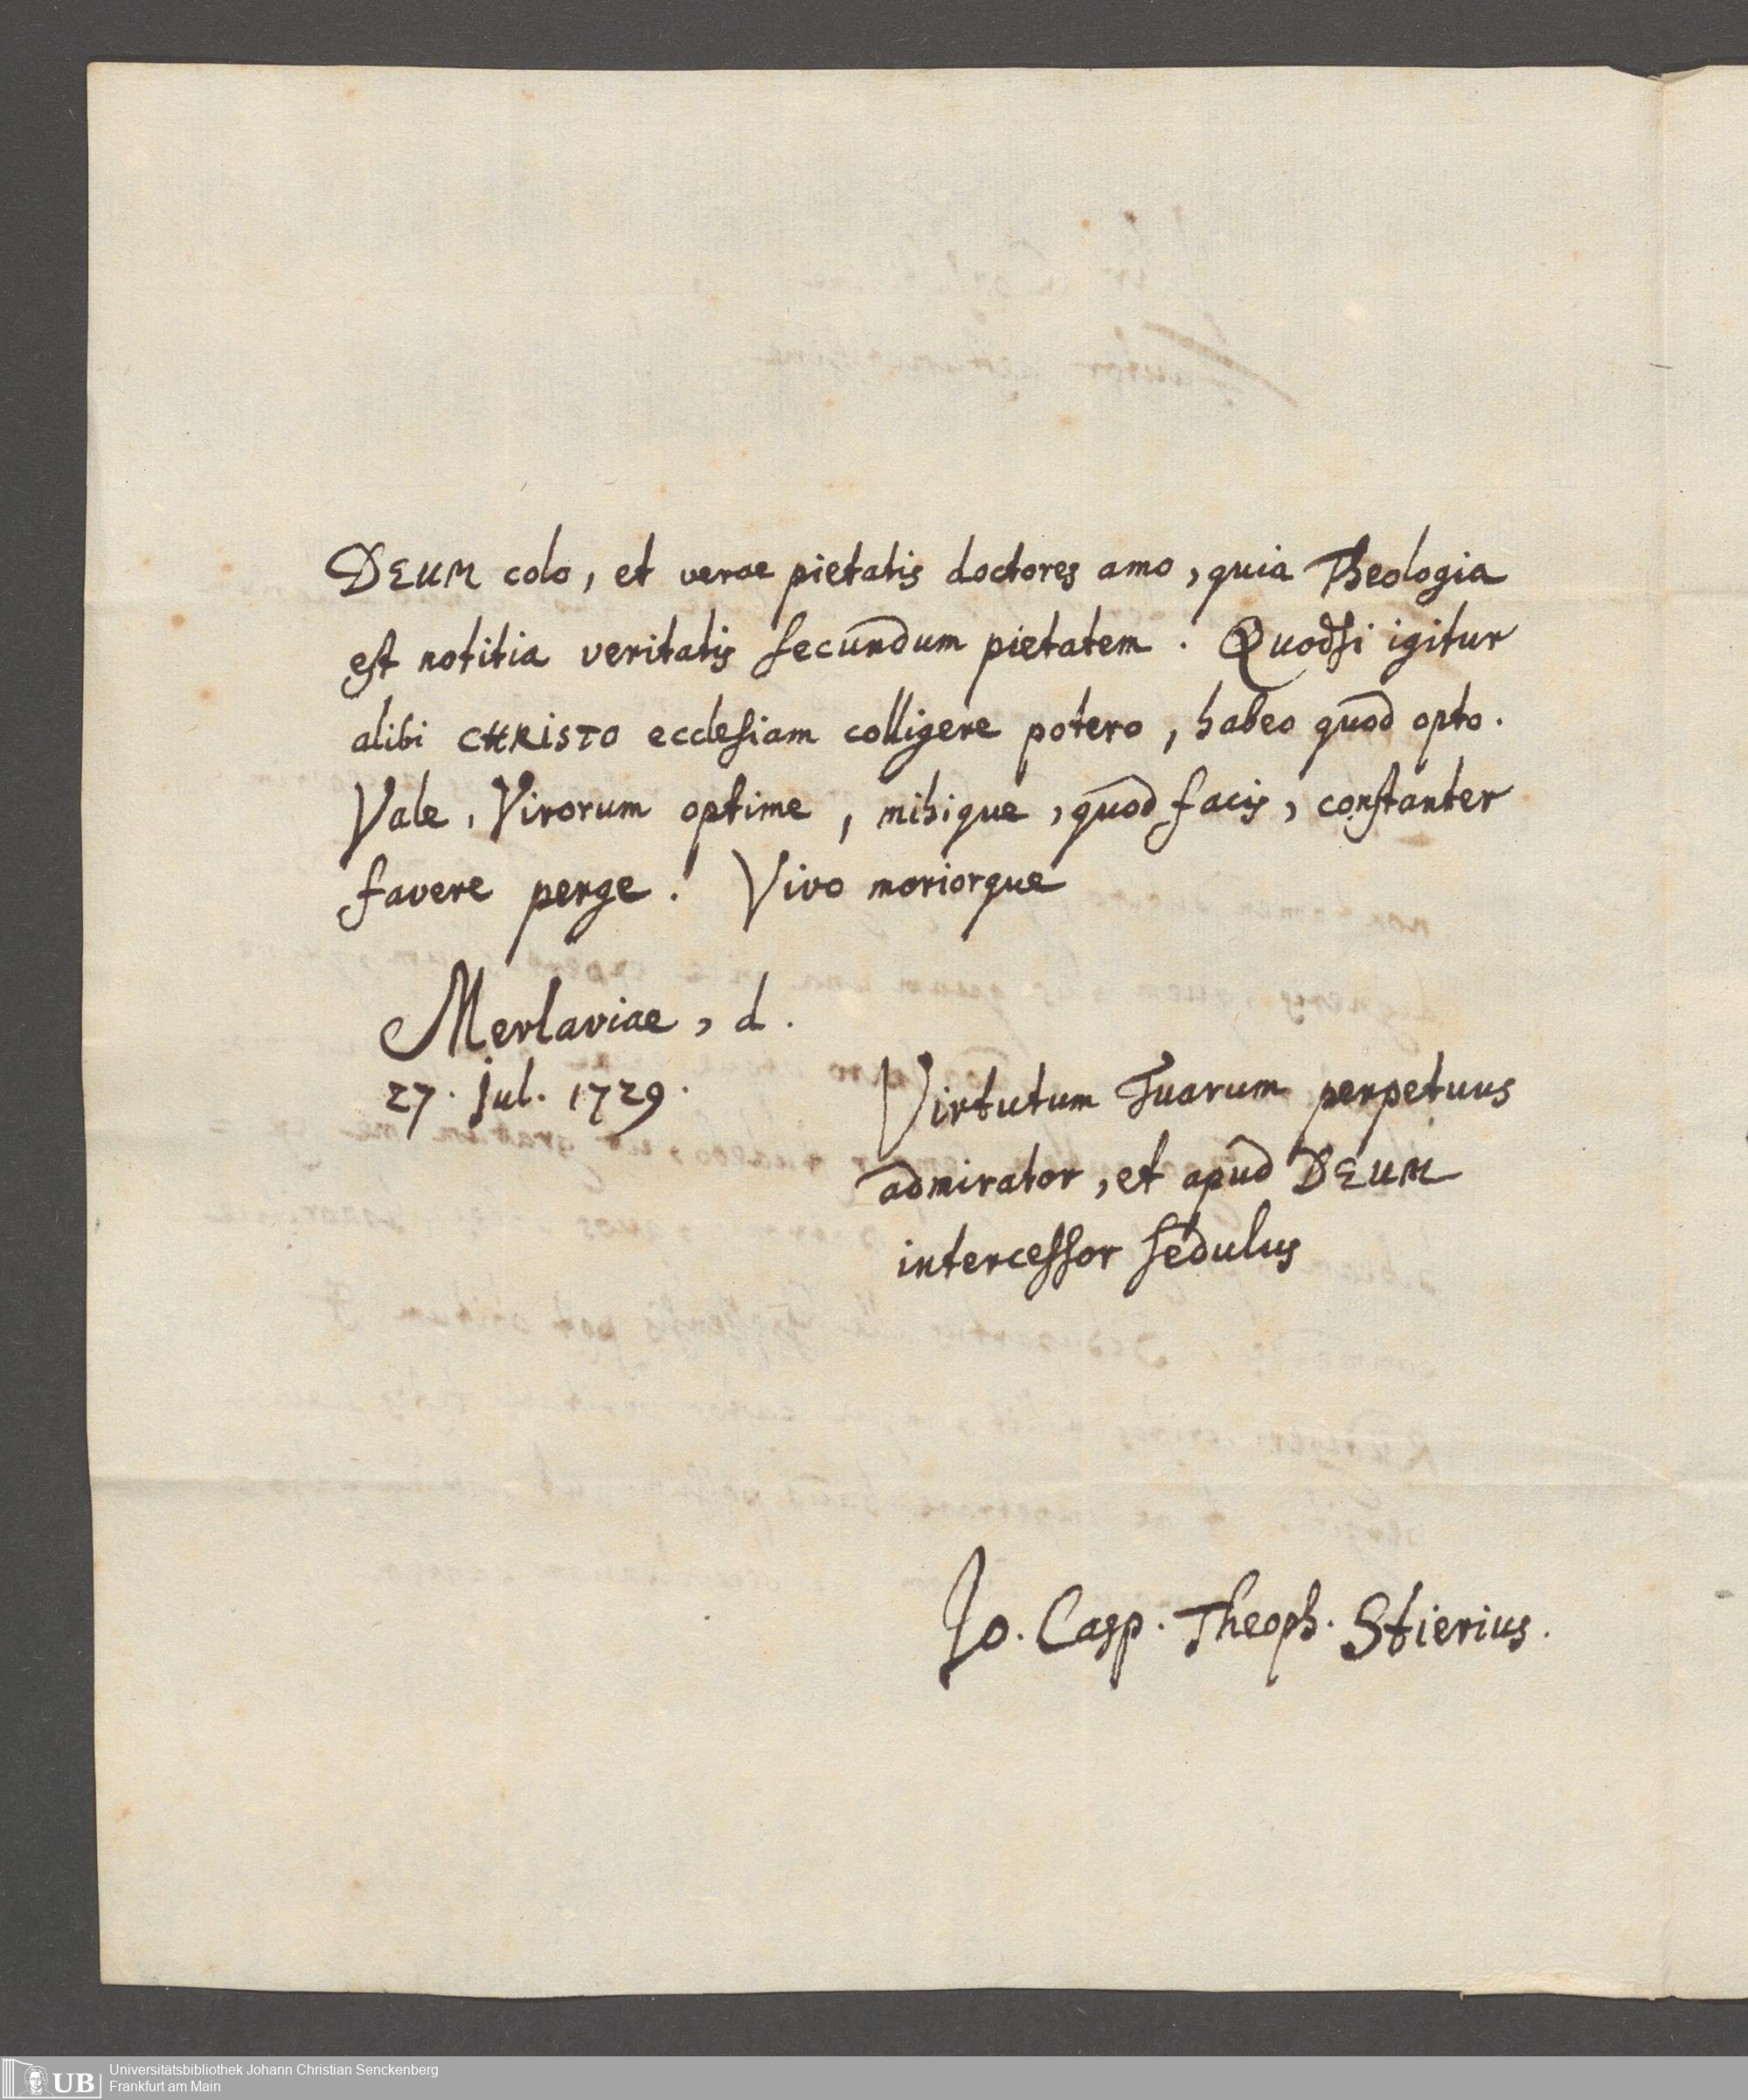 DEUM colo, et verae pietatis doctores amo, quia Theologia
est notitia veritatis secundum pietatem. Quodsi igitur
alibi CHRISTO ecclesiam colligere potero, habeo quod opto.
Vale, Virorum optime, mihique, quod facis, constanter
favere perge. Vivo moriorque
Merlaviae, d.
27. Jul. 1729.
Virtutum Tuarum perpetuus
admirator, et apud DEUM
intercessor sedulus
Jo. Casp. Theoph. Stierius.
UB Universitätsbibliothek Johann Christian Senckenberg
Frankfurt am Main